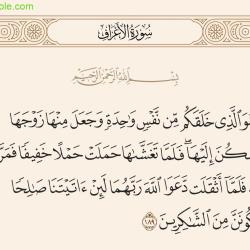 ple.com
سُورَةُ الأَعْرَافِ
بِسْمِ اللَّهِ الرَّحْمَٰنِ الرَّحِيمِ
الَّذِي خَلَقَكُم مِّن نَّفْسٍ وَاحِدَةٍ وَجَعَلَ مِنْهَا زَوْجَهَا
إِلَيْهَا ۖ فَلَمَّا تَغَشَّىٰهَا حَمَلَتْ حَمْلًا خَفِيفًا
فَلَمَّا أَثْقَلَت دَّعَوَا اللَّهَ رَبَّهُمَا لَئِنْ ءَاتَيْتَنَا صَٰلِحًا
مِنَ الشَّٰكِرِينَ ١٨٩